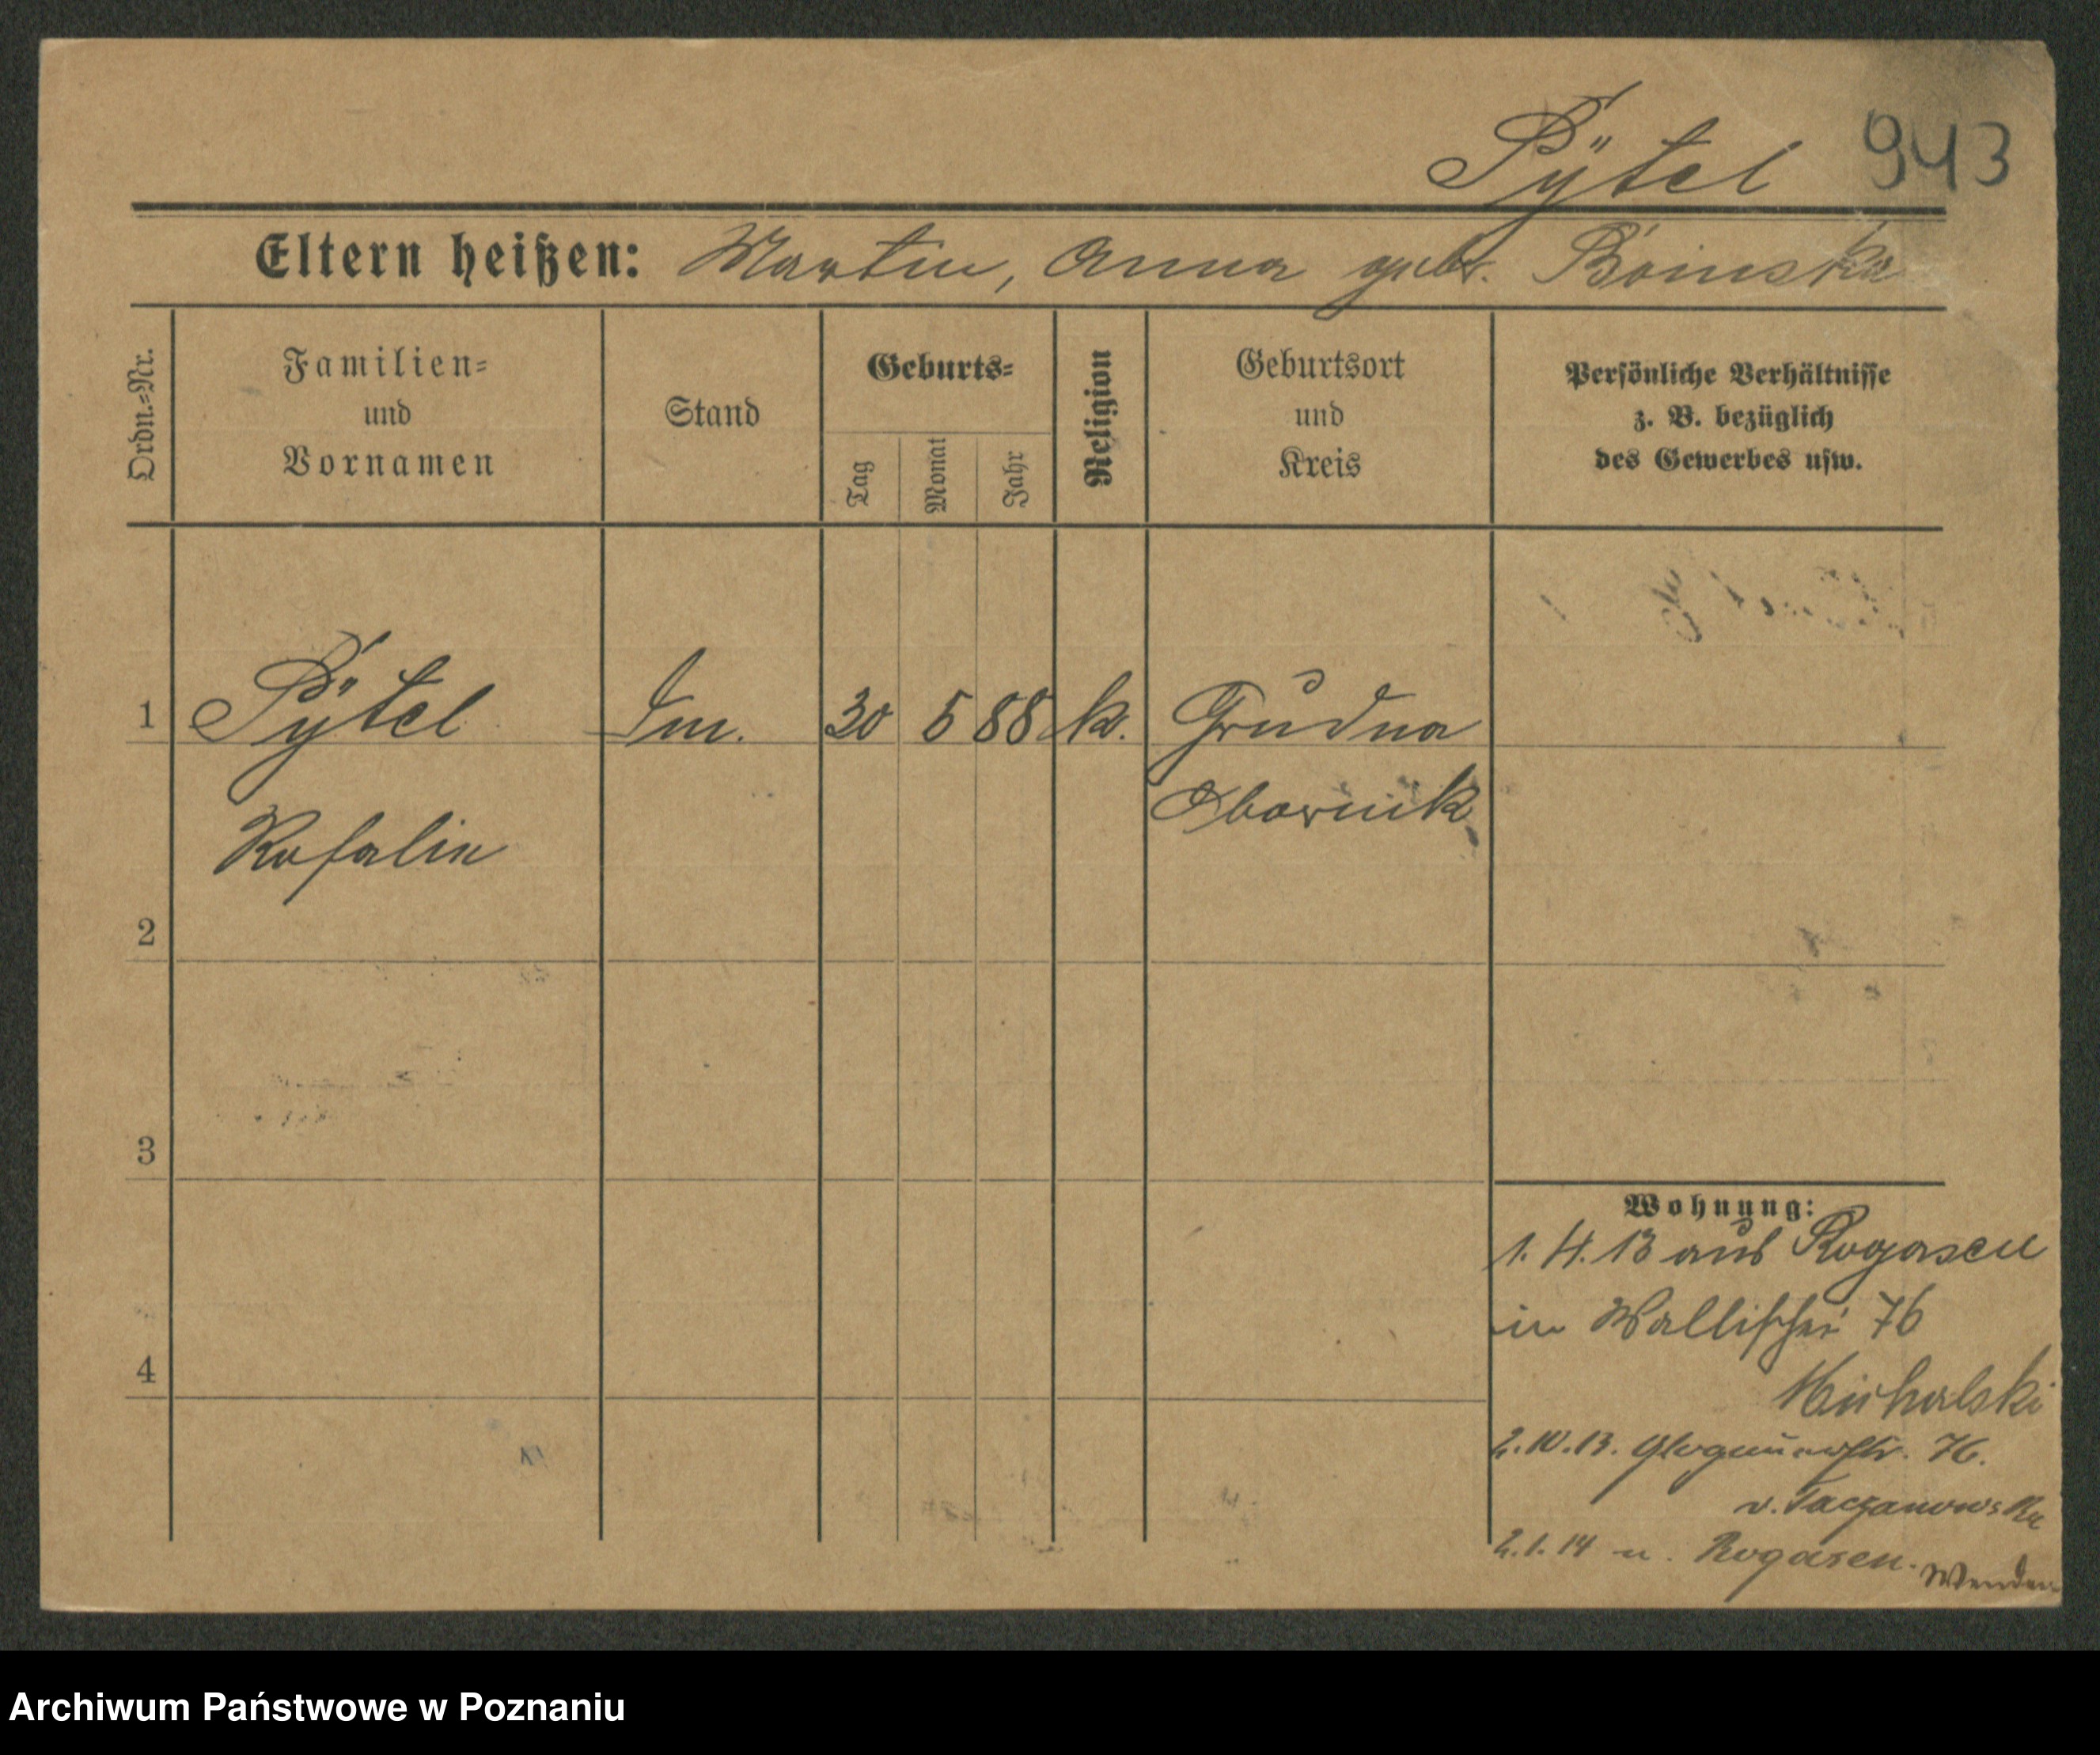 Pÿtel 943
Eltern heißen: Martin, Anna geb. Boinska
Ordn.-Nr.
Familien-
und
Vornamen
Stand
Geburts-
Tag
Monat
Jahr
Religion
Geburtsort
und
Kreis
Persönliche Verhältnisse
z. B. bezüglich
des Gewerbes usw.
1 Pÿtel 30 5 88 k. Grudna
Obornik
Rosalie
2
3
4
Wohnung:
1. 4. 13 aus Rogasen
in Wallischei 76
Michalski
2. 10. 13. Glogauerstr. 76.
v. Taczanowska
2. 1. 14 n. Rogasen.
Wenden
Archiwum Państwowe w Poznaniu